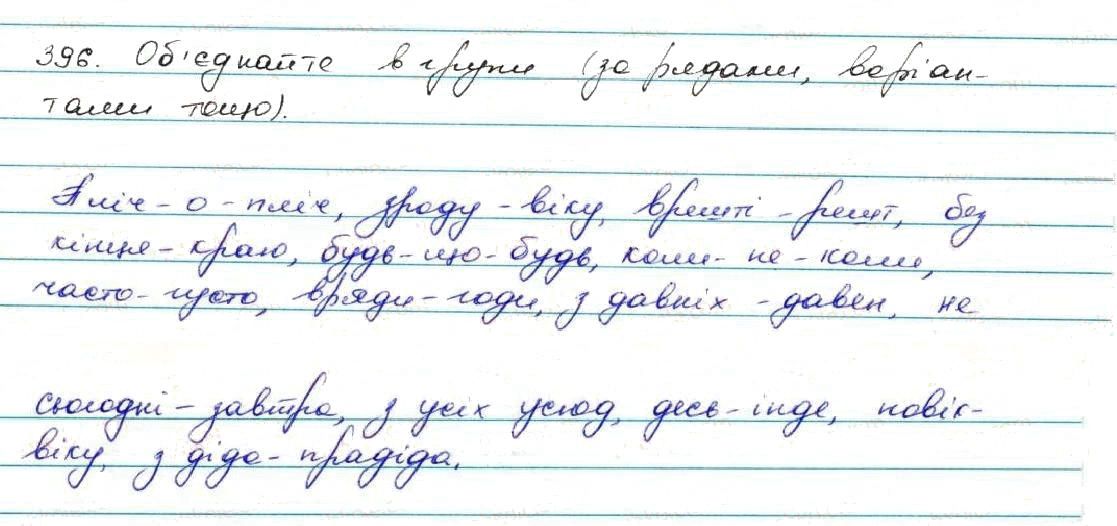 396. Об'єднайте в групи (за рядами, варіан-
тами тощо).
Пліч-о-пліч, зроду-віку, врешті-решт, без
кінця-краю, будь-що-будь, коли-не-коли,
часто-густо, вряди-годи, з давніх-давен, не
сьогодні-завтра, з усіх усюд, десь-інде, повік-
віку, з діда-прадіда.